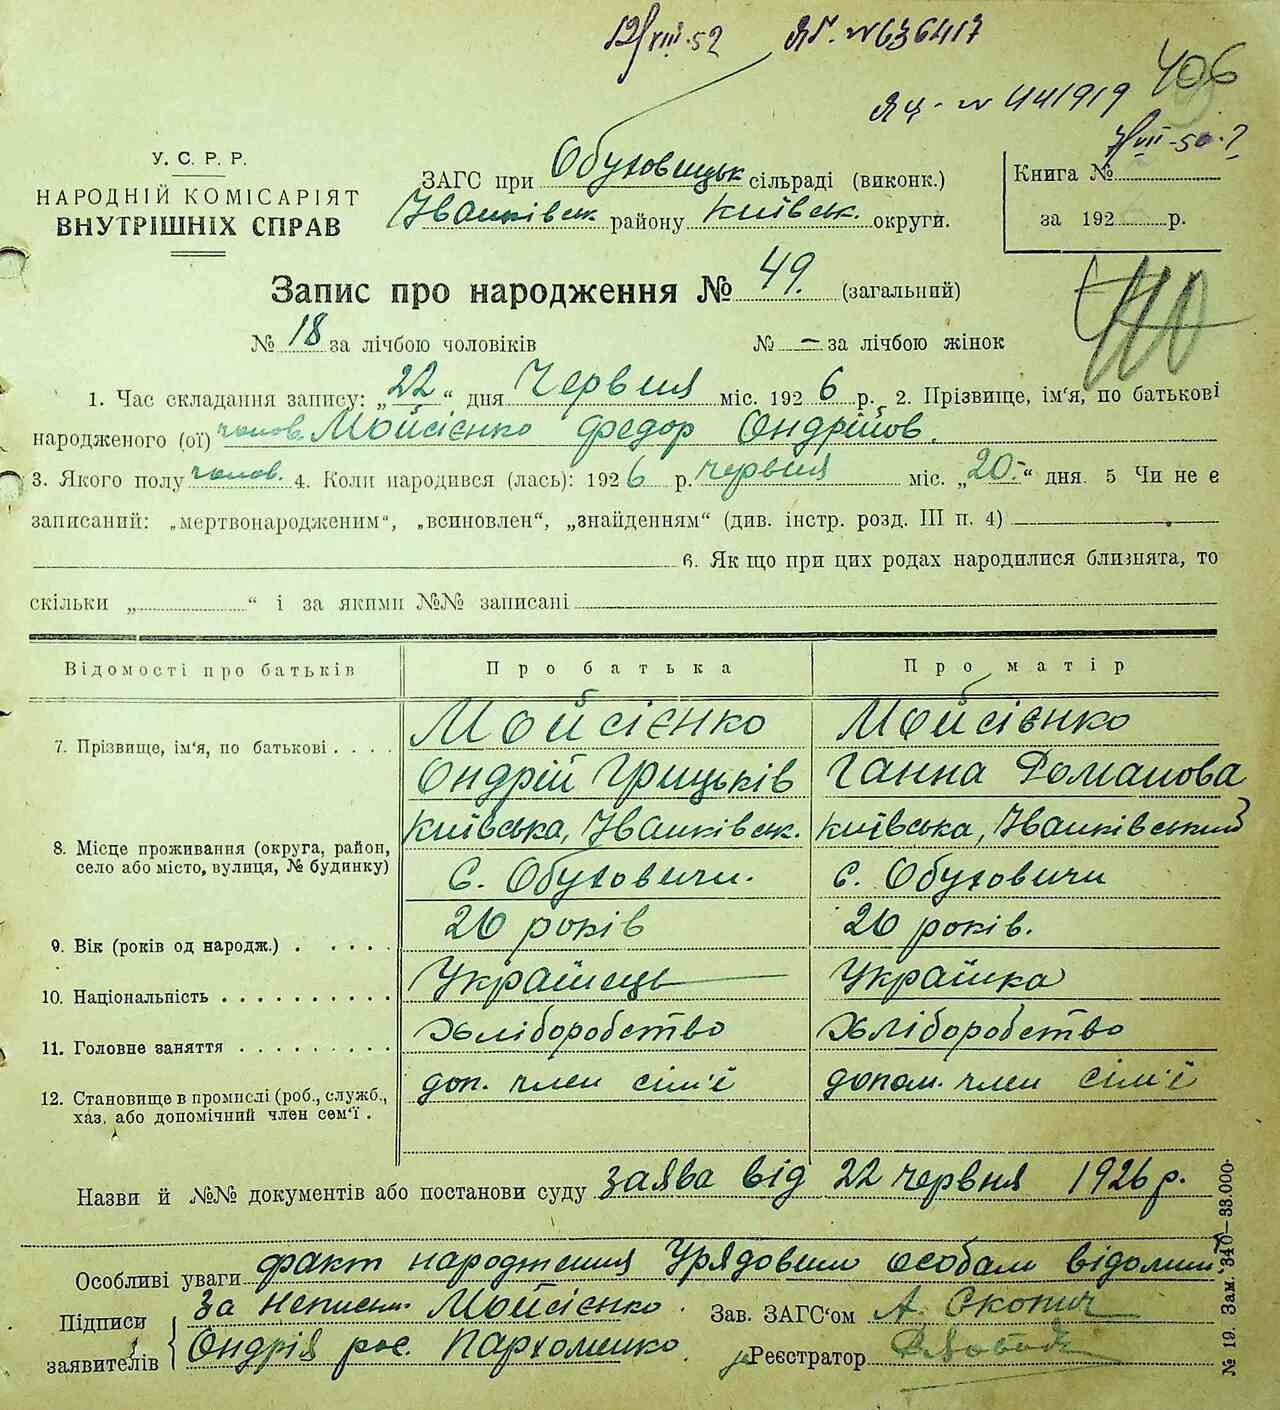 12/VIII-52 ЯГ. № 636417
406
ЯЦ - № 441919
У. С. Р. Р.
НАРОДНІЙ КОМІСАРІЯТ
ВНУТРІШНІХ СПРАВ
ЗАГС при Обуховицьк сільраді (виконк.)
Іванківськ району Київськ. округи.
Книга №
за 192 р.
Запис про народження № 49. (загальний)
410
№ 18 за лічбою чоловіків № – за лічбою жінок
1. Час складання запису: „22“ дня Червня міс. 1926 р. 2. Прізвище, ім‘я, по батькові
народженого (ої) чолов. Мойсієнко Федор Ондрійов.
3. Якого полу чолов. 4. Коли народився (лась): 1926 р. червня міс. „20.“ дня. 5 Чи не є
записаний: „мертвонародженим“, „всиновлен“, „знайденням“ (див. інстр. розд. III п. 4)
6. Як що при цих родах народилися близнята, то
скільки „ “ і за якими №№ записані
Відомості про батьків Про батька Про матір
7. Прізвище, ім‘я, по батькові . . . . Мойсієнко Мойсієнко
Ондрій Грицьків Ганна Романова
8. Місце проживання (округа, район, село або місто, вулиця, № будинку) Київська, Іванківськ. Київська, Іванківський
с. Обуховичи. с. Обуховичи
9. Вік (років од народж.) . . . . . 26 років 26 років.
10. Національність . . . . . . . . . . Українець Українка
11. Головне заняття . . . . . . . . . Хліборобство Хліборобство
12. Становище в промислі (роб., служб., хаз. або допомічний член сем‘ї . доп. член сім'ї допом. член сім'ї
Назви й №№ документів або постанови суду заява від 22 червня 1926 р.
Особливі уваги факт народження Урядовим особам відомий
Підписи заявителів За неписьм. Мойсієнко Зав. ЗАГС‘ом А. Скопич
Ондрія рос. Пархоменко Реєстратор
№ 19. Зам. 340—33.000.